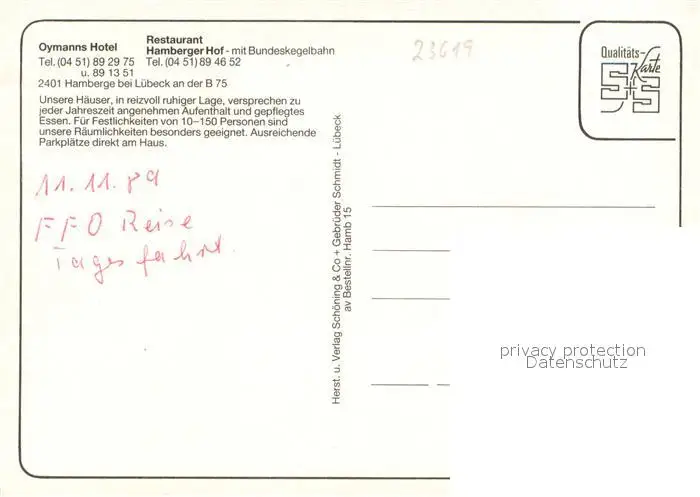 Oymanns Hotel
Tel. (04 51) 89 29 75
u. 89 13 51
Restaurant
Hamberger Hof - mit Bundeskegelbahn
Tel. (04 51) 89 46 52
2401 Hamberge bei Lübeck an der B 75
Unsere Häuser, in reizvoll ruhiger Lage, versprechen zu
jeder Jahreszeit angenehmen Aufenthalt und gepflegtes
Essen. Für Festlichkeiten von 10–150 Personen sind
unsere Räumlichkeiten besonders geeignet. Ausreichende
Parkplätze direkt am Haus.
11.11.89
FFO Reise
Tagesfahrt.
Herst. u. Verlag Schöning & Co + Gebrüder Schmidt - Lübeck
av Bestellnr. Hamb 15
23619
Qualitäts-
Karte
S+S
privacy protection
Datenschutz